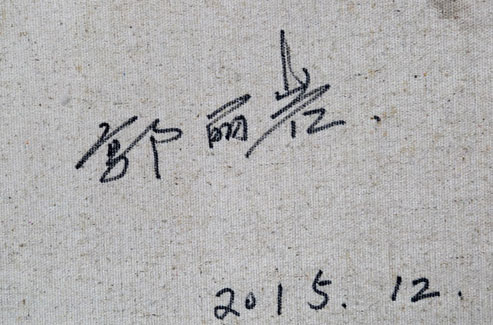 郭丽岩.
2015. 12.